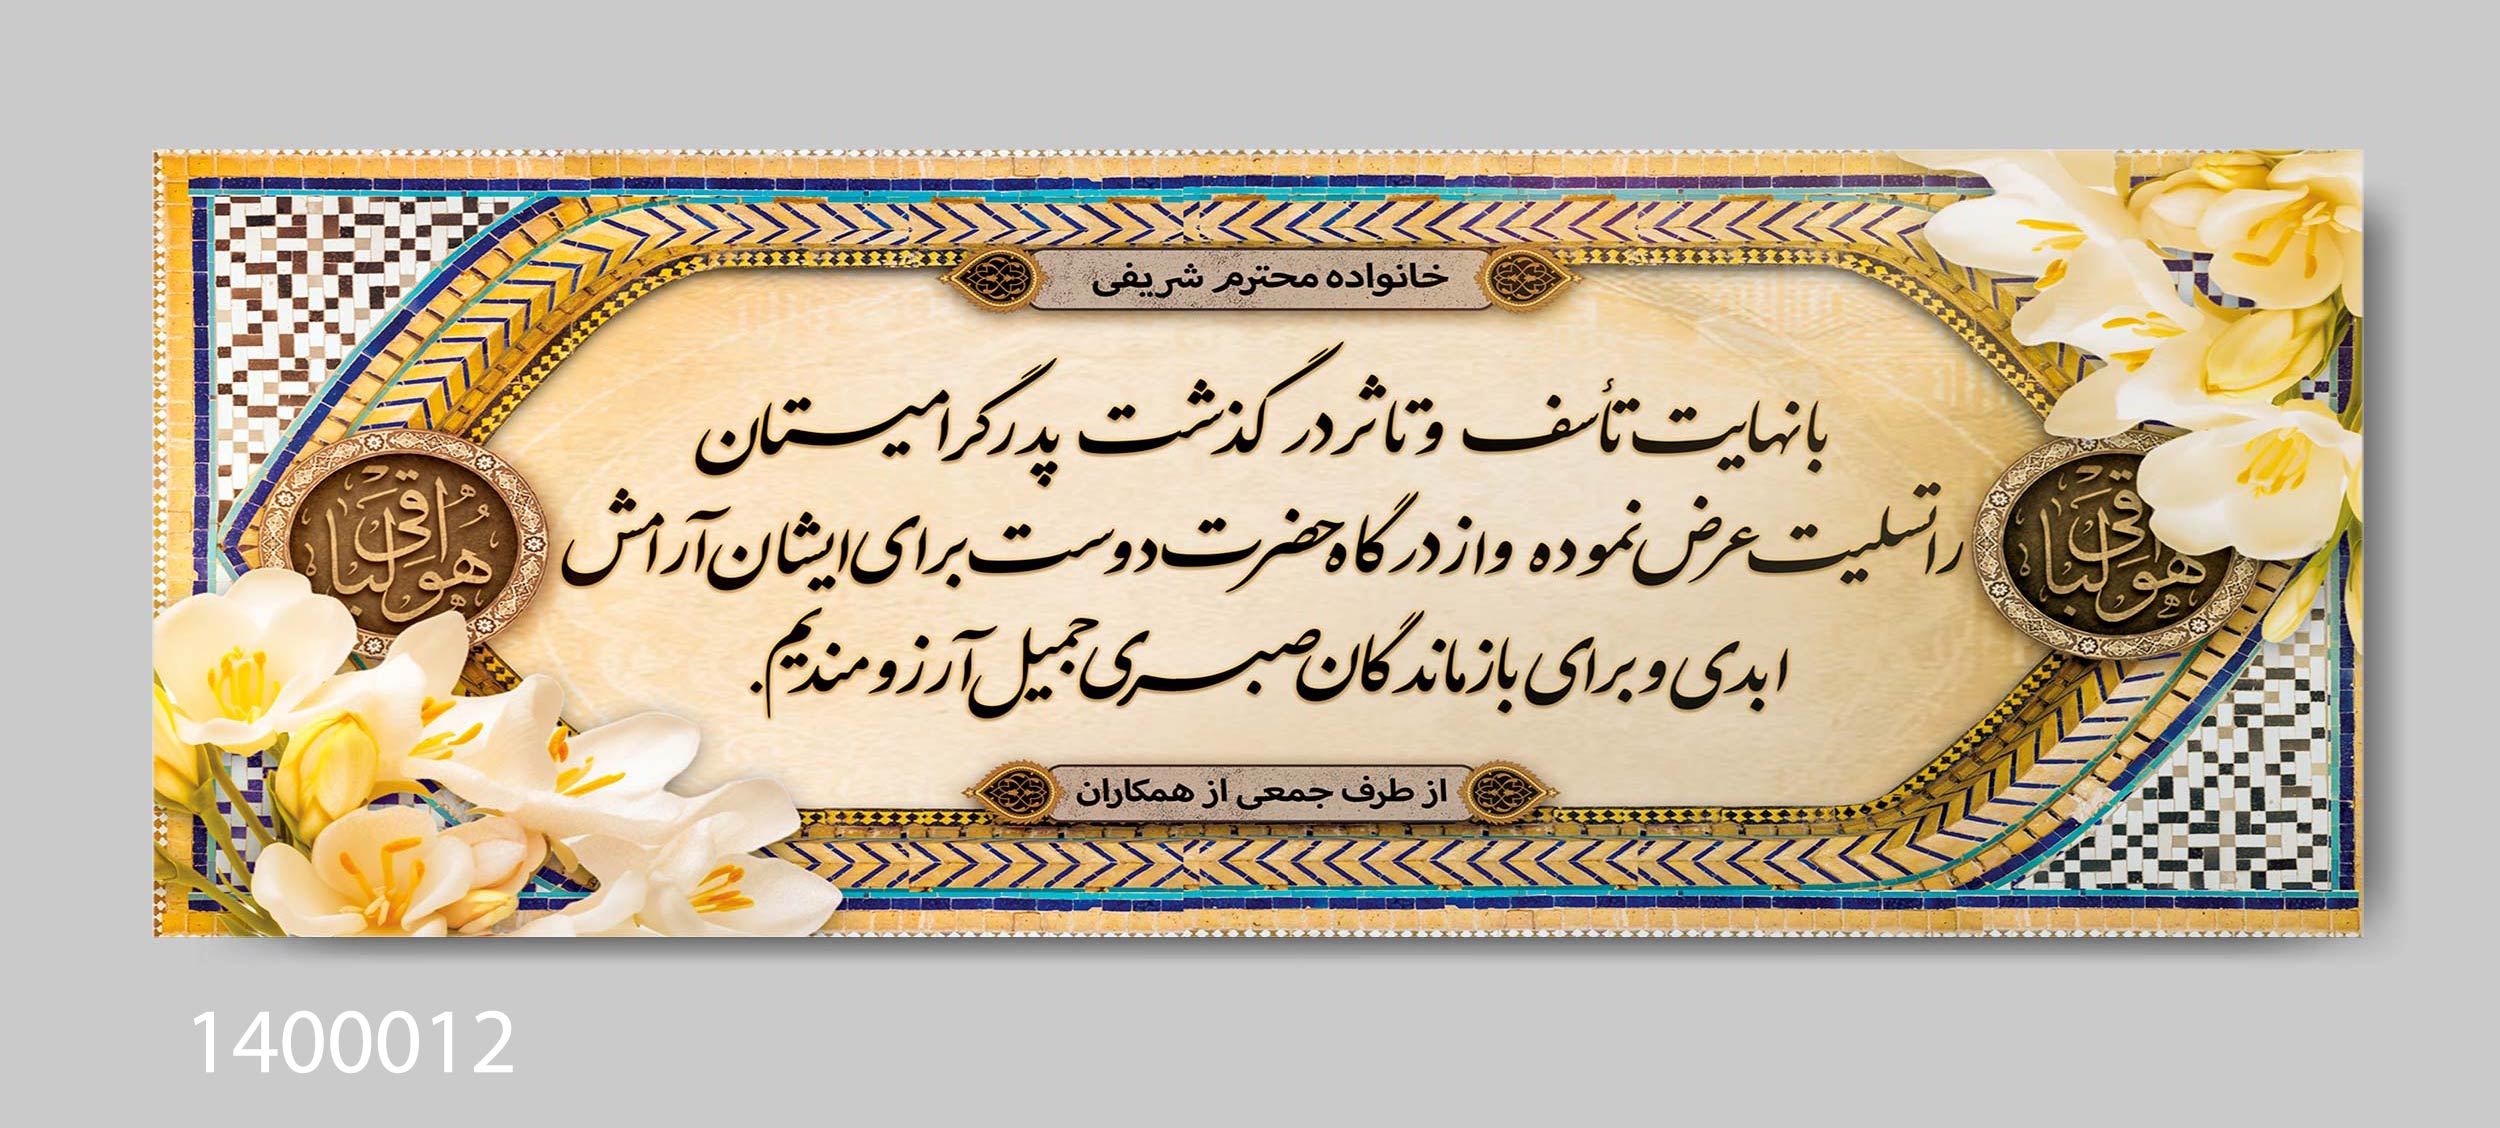 خانواده محترم شریفی
بانهایت تأسف و تاثر در گذشت پدر گرامیستان
را تسلیت عرض نموده و از درگاه حضرت دوست برای ایشان آرامش
ابدی و برای بازماندگان صبری جمیل آرزومندیم.
از طرف جمعی از همکاران
هوالباقی
هوالباقی
1400012